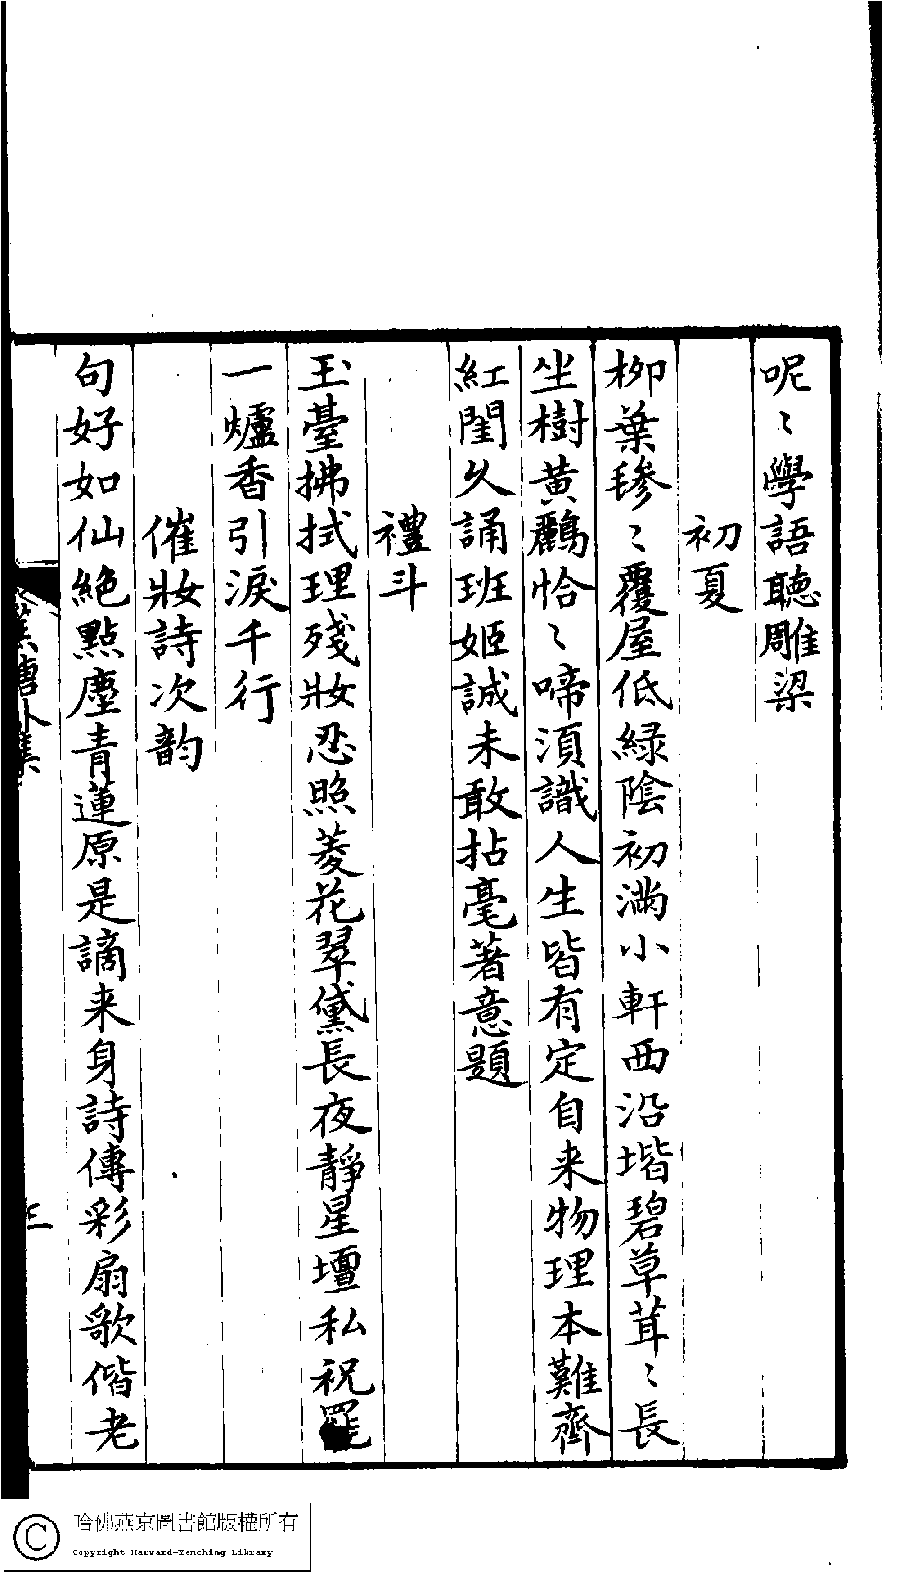 呢〻學語聽雕梁
初夏
栁葉毵〻覆屋低綠陰初滿小軒西沿堦碧草茸〻長
坐樹黃鸝恰〻啼須識人生皆有定自来物理本難齊
紅閨久誦班姬誡未敢拈毫著意題
禮斗
玉臺拂拭理殘妝忍照菱花翠黛長夜靜星壇私祝罷
一爐香引淚千行
催妝詩次韵
句好如仙絕點塵青蓮原是謫来身詩傳彩扇歌偕老
三
哈佛燕京圖書館版權所有
Copyright Harvard-Yenching Library